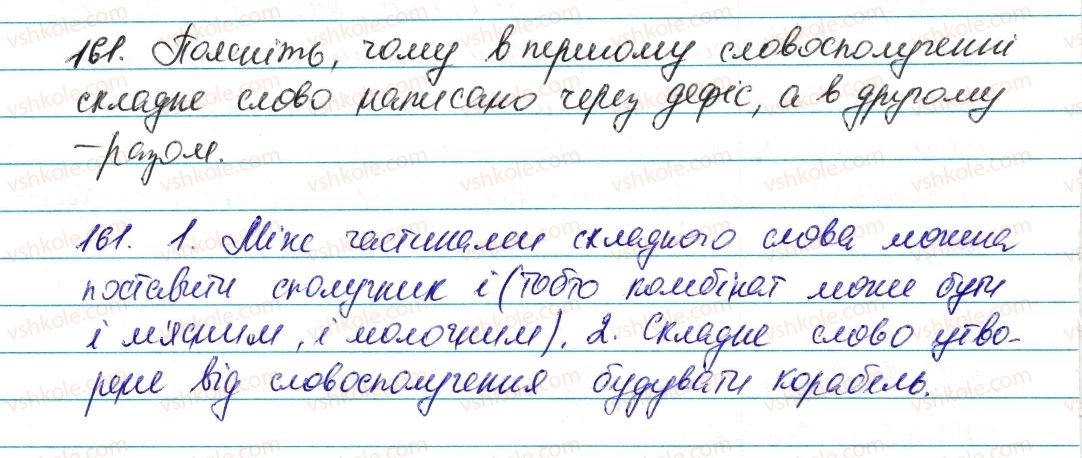 161. Поясніть, чому в першому словосполученні
складне слово написано через дефіс, а в другому
– разом.
161. 1. Між частинами складного слова можна
поставити сполучник і (тобто комбінат може бути
і м'ясним, і молочним). 2. Складне слово утво-
рене від словосполучення будувати корабель.